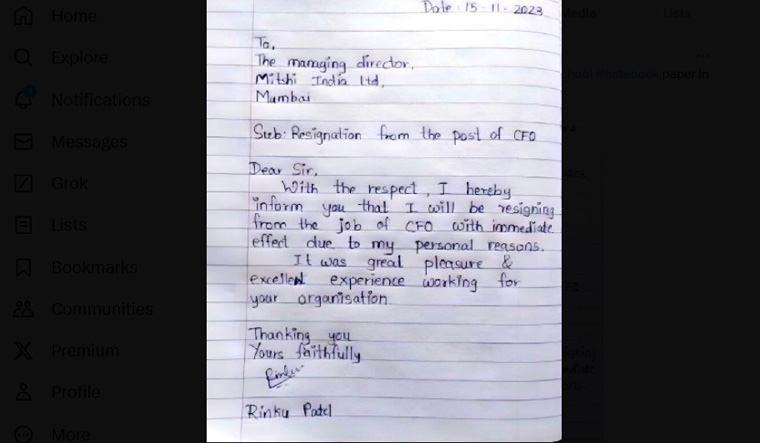 Home
Explore
Notifications
Messages
Grok
Lists
Bookmarks
Communities
Premium
Profile
More
Date : 15-11-2023
To,
The managing director,
Mitshi India Ltd,
Mumbai
Sub: Resignation from the post of CFO
Dear Sir,
With the respect, I hereby
inform you that I will be resigning
from the job of CFO with immediate
effect due to my personal reasons.
It was great pleasure &
excellent experience working for
your organisation
Thanking you
Yours faithfully
Rinku
Rinku Patel
Media
Lists
#notebook paper in